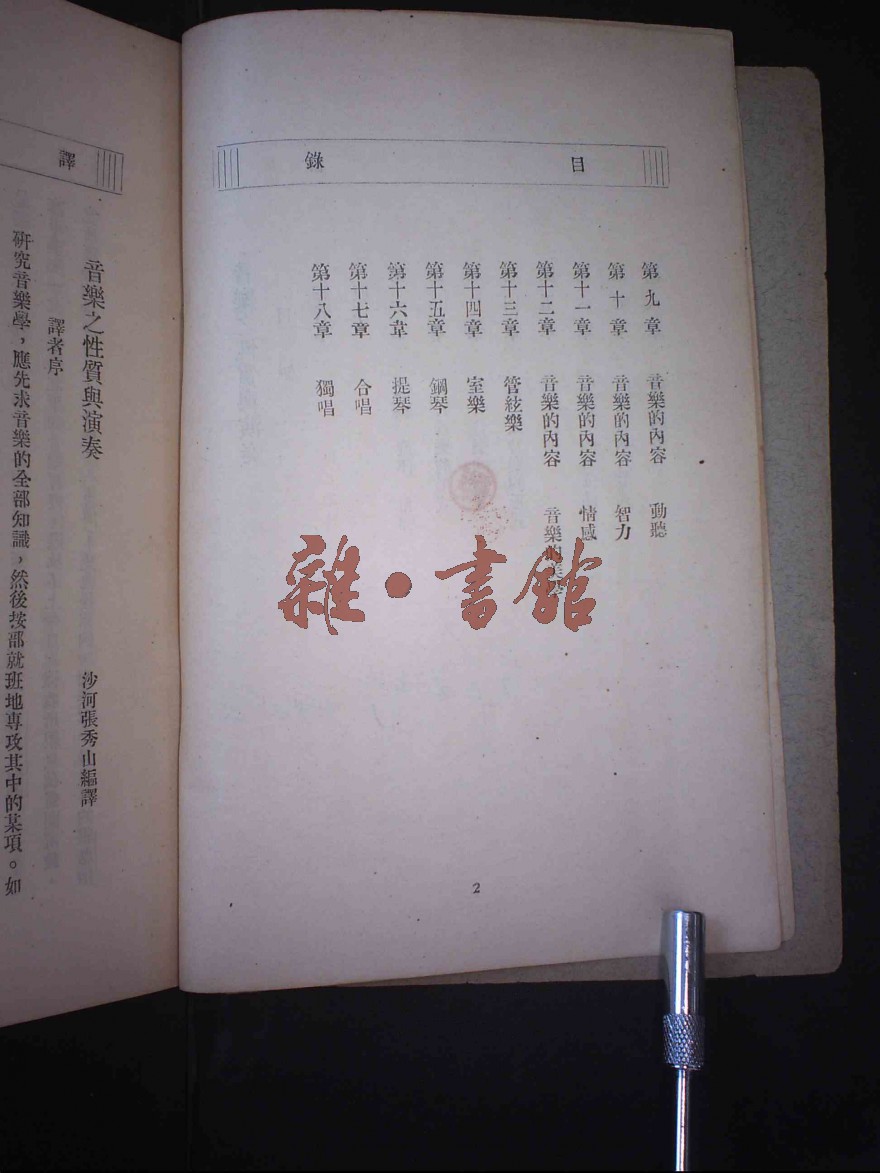 目錄
第九章 音樂的內容 動聽
第十章 音樂的內容 智力
第十一章 音樂的內容 情感
第十二章 音樂的內容 音樂的美
第十三章 管絃樂
第十四章 室樂
第十五章 鋼琴
第十六章 提琴
第十七章 合唱
第十八章 獨唱
2
譯
音樂之性質與演奏 沙河張秀山編譯
譯者序
研究音樂學，應先求音樂的全部知識，然後按部就班地専攻其中的某項。如
雜·書館